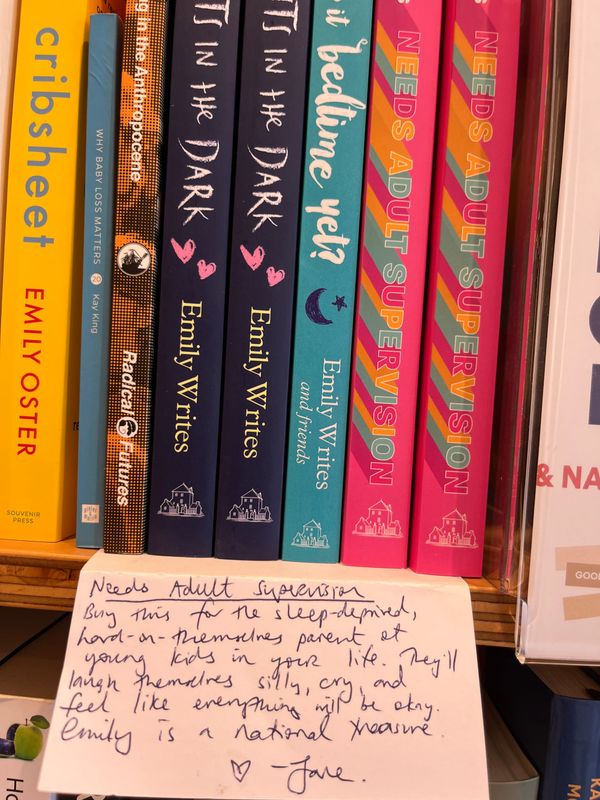 cribsheet EMILY OSTER
SOUVENIR PRESS
WHY BABY LOSS MATTERS 20 Kay King
in the Anthropocene Radical Futures
IN THE DARK Emily Writes
IN THE DARK Emily Writes
it bedtime yet? Emily Writes and friends
NEEDS ADULT SUPERVISION
NEEDS ADULT SUPERVISION
& NA
GOO
Needs Adult Supervision
Buy this for the sleep-deprived,
hard-on-themselves parent of
young kids in your life. They'll
laugh themselves silly, cry, and
feel like everything will be okay.
Emily is a national treasure.
♡ -Jane.